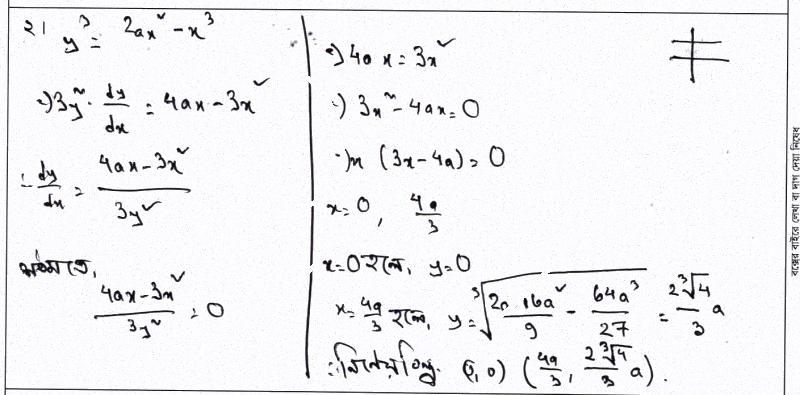 ২। y³ = 2ax² - x³
⇒ 3y² · dy/dx = 4ax - 3x²
∴ dy/dx = (4ax - 3x²)/(3y²)
শর্তমতে,
(4ax - 3x²)/(3y²) = 0
⇒ 4ax = 3x²
⇒ 3x² - 4ax = 0
⇒ x (3x - 4a) = 0
x = 0, 4a/3
x = 0 হলে, y = 0
x = 4a/3 হলে, y = ∛(2a·16a²/9 - 64a³/27) = (2∛4/3)a
∴ নির্ণেয় বিন্দু (0, 0) (4a/3, (2∛4/3)a).
বক্সের বাইরে লেখা বা দাগ দেয়া নিষেধ